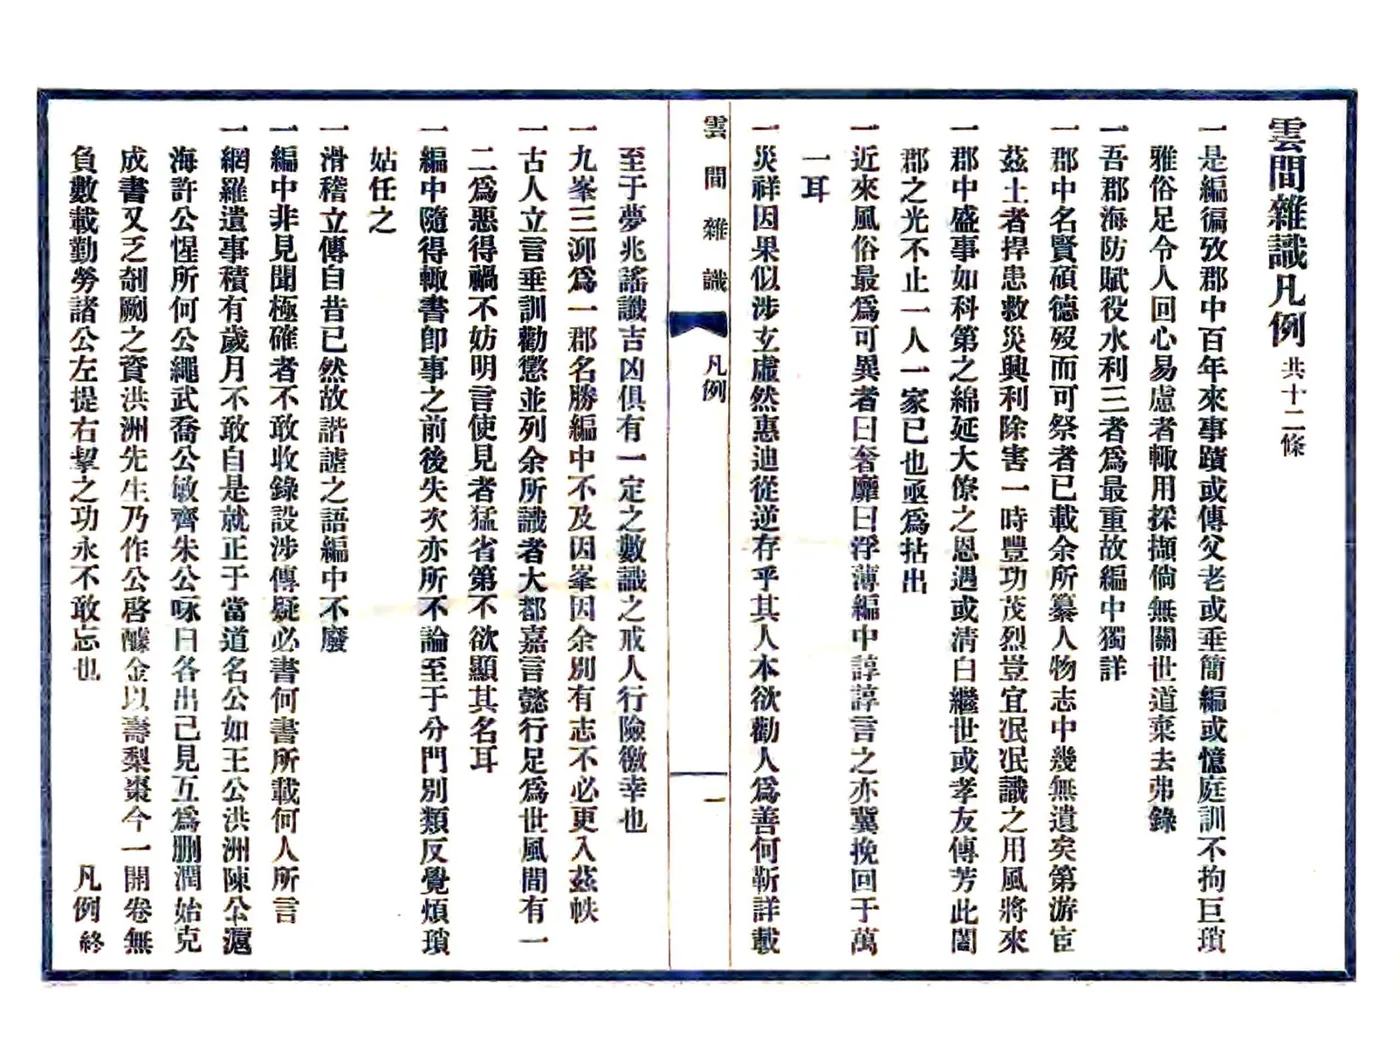 雲間雜識凡例 共十二條
一是編徧攷郡中百年來事蹟或傳父老或垂簡編或憶庭訓不拘巨瑣
雅俗足令人回心易慮者輙用採擷倘無關世道棄去弗錄
一吾郡海防賦役水利三者爲最重故編中獨詳
一郡中名賢碩德歿而可祭者已載余所纂人物志中幾無遺矣第游宦
茲土者捍患救災興利除害一時豐功茂烈豈宜泯泯識之用風將來
一郡中盛事如科第之綿延大僚之恩遇或淸白繼世或孝友傳芳此闔
郡之光不止一人一家已也亟爲拈出
一近來風俗最爲可異者曰奢靡曰浮薄編中諄諄言之亦冀挽回于萬
一耳
一災祥因果似涉玄虛然惠迪從逆存乎其人本欲勸人爲善何靳詳載
雲間雜識
凡例
一
至于夢兆謠讖吉凶俱有一定之數識之戒人行險徼幸也
一九峯三泖爲一郡名勝編中不及因峯因余別有志不必更入茲帙
一古人立言垂訓勸懲並列余所識者大都嘉言懿行足爲世風間有一
二爲惡得禍不妨明言使見者猛省第不欲顯其名耳
一編中隨得輙書卽事之前後失次亦所不論至于分門別類反覺煩瑣
姑任之
一滑稽立傳自昔已然故諧謔之語編中不廢
一編中非見聞極確者不敢收錄設涉傳疑必書何書所載何人所言
一網羅遺事積有歲月不敢自是就正于當道名公如王公洪洲陳公滬
海許公惺所何公繩武喬公敏齊朱公咏白各出己見互爲删潤始克
成書又乏剞劂之資洪洲先生乃作公啓醵金以壽梨棗今一開卷無
負數載勤勞諸公左提右挈之功永不敢忘也
凡例終